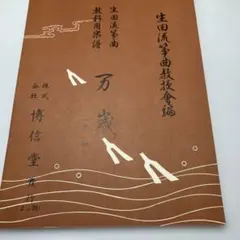 生田流箏曲教授會編
生田流箏曲
教科用楽譜
万歳
株式
会社
博信堂